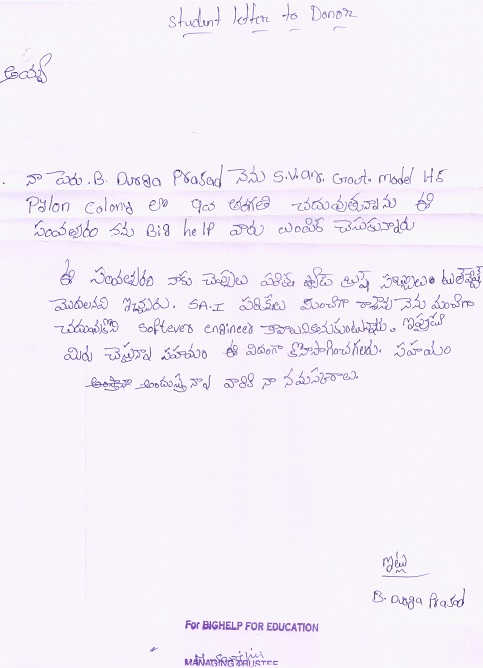 Student letter to Donor
అయ్యా
నా పేరు. B. Durga Prasad నేను S.V.G.V. Govt. model HS
Pylon Colony లో తరగతి చదువుతున్నాను ఈ
సంవత్సరం నను Big help వారు ఎంపిక చేసుకున్నారు
ఈ సంవత్సరం నాకు చెప్పులు పేస్టు బ్రష్
మొదలనవి ఇచ్చారు. SA.I పరిక్షలు మంచిగా రాశాను నేను మంచిగా
చదువుకొని softever engineer కావాలనుకుంటున్నాను. ఇప్పుడు
మిరు చెస్తునా సహయం ఈ విదంగా కొనసాగించగలరు. సహయం
అందుస్తు నా వారికి నా నమస్కారాలు.
ఇట్లు
B. Durga Prasad
For BIGHELP FOR EDUCATION
MANAGING TRUSTEE